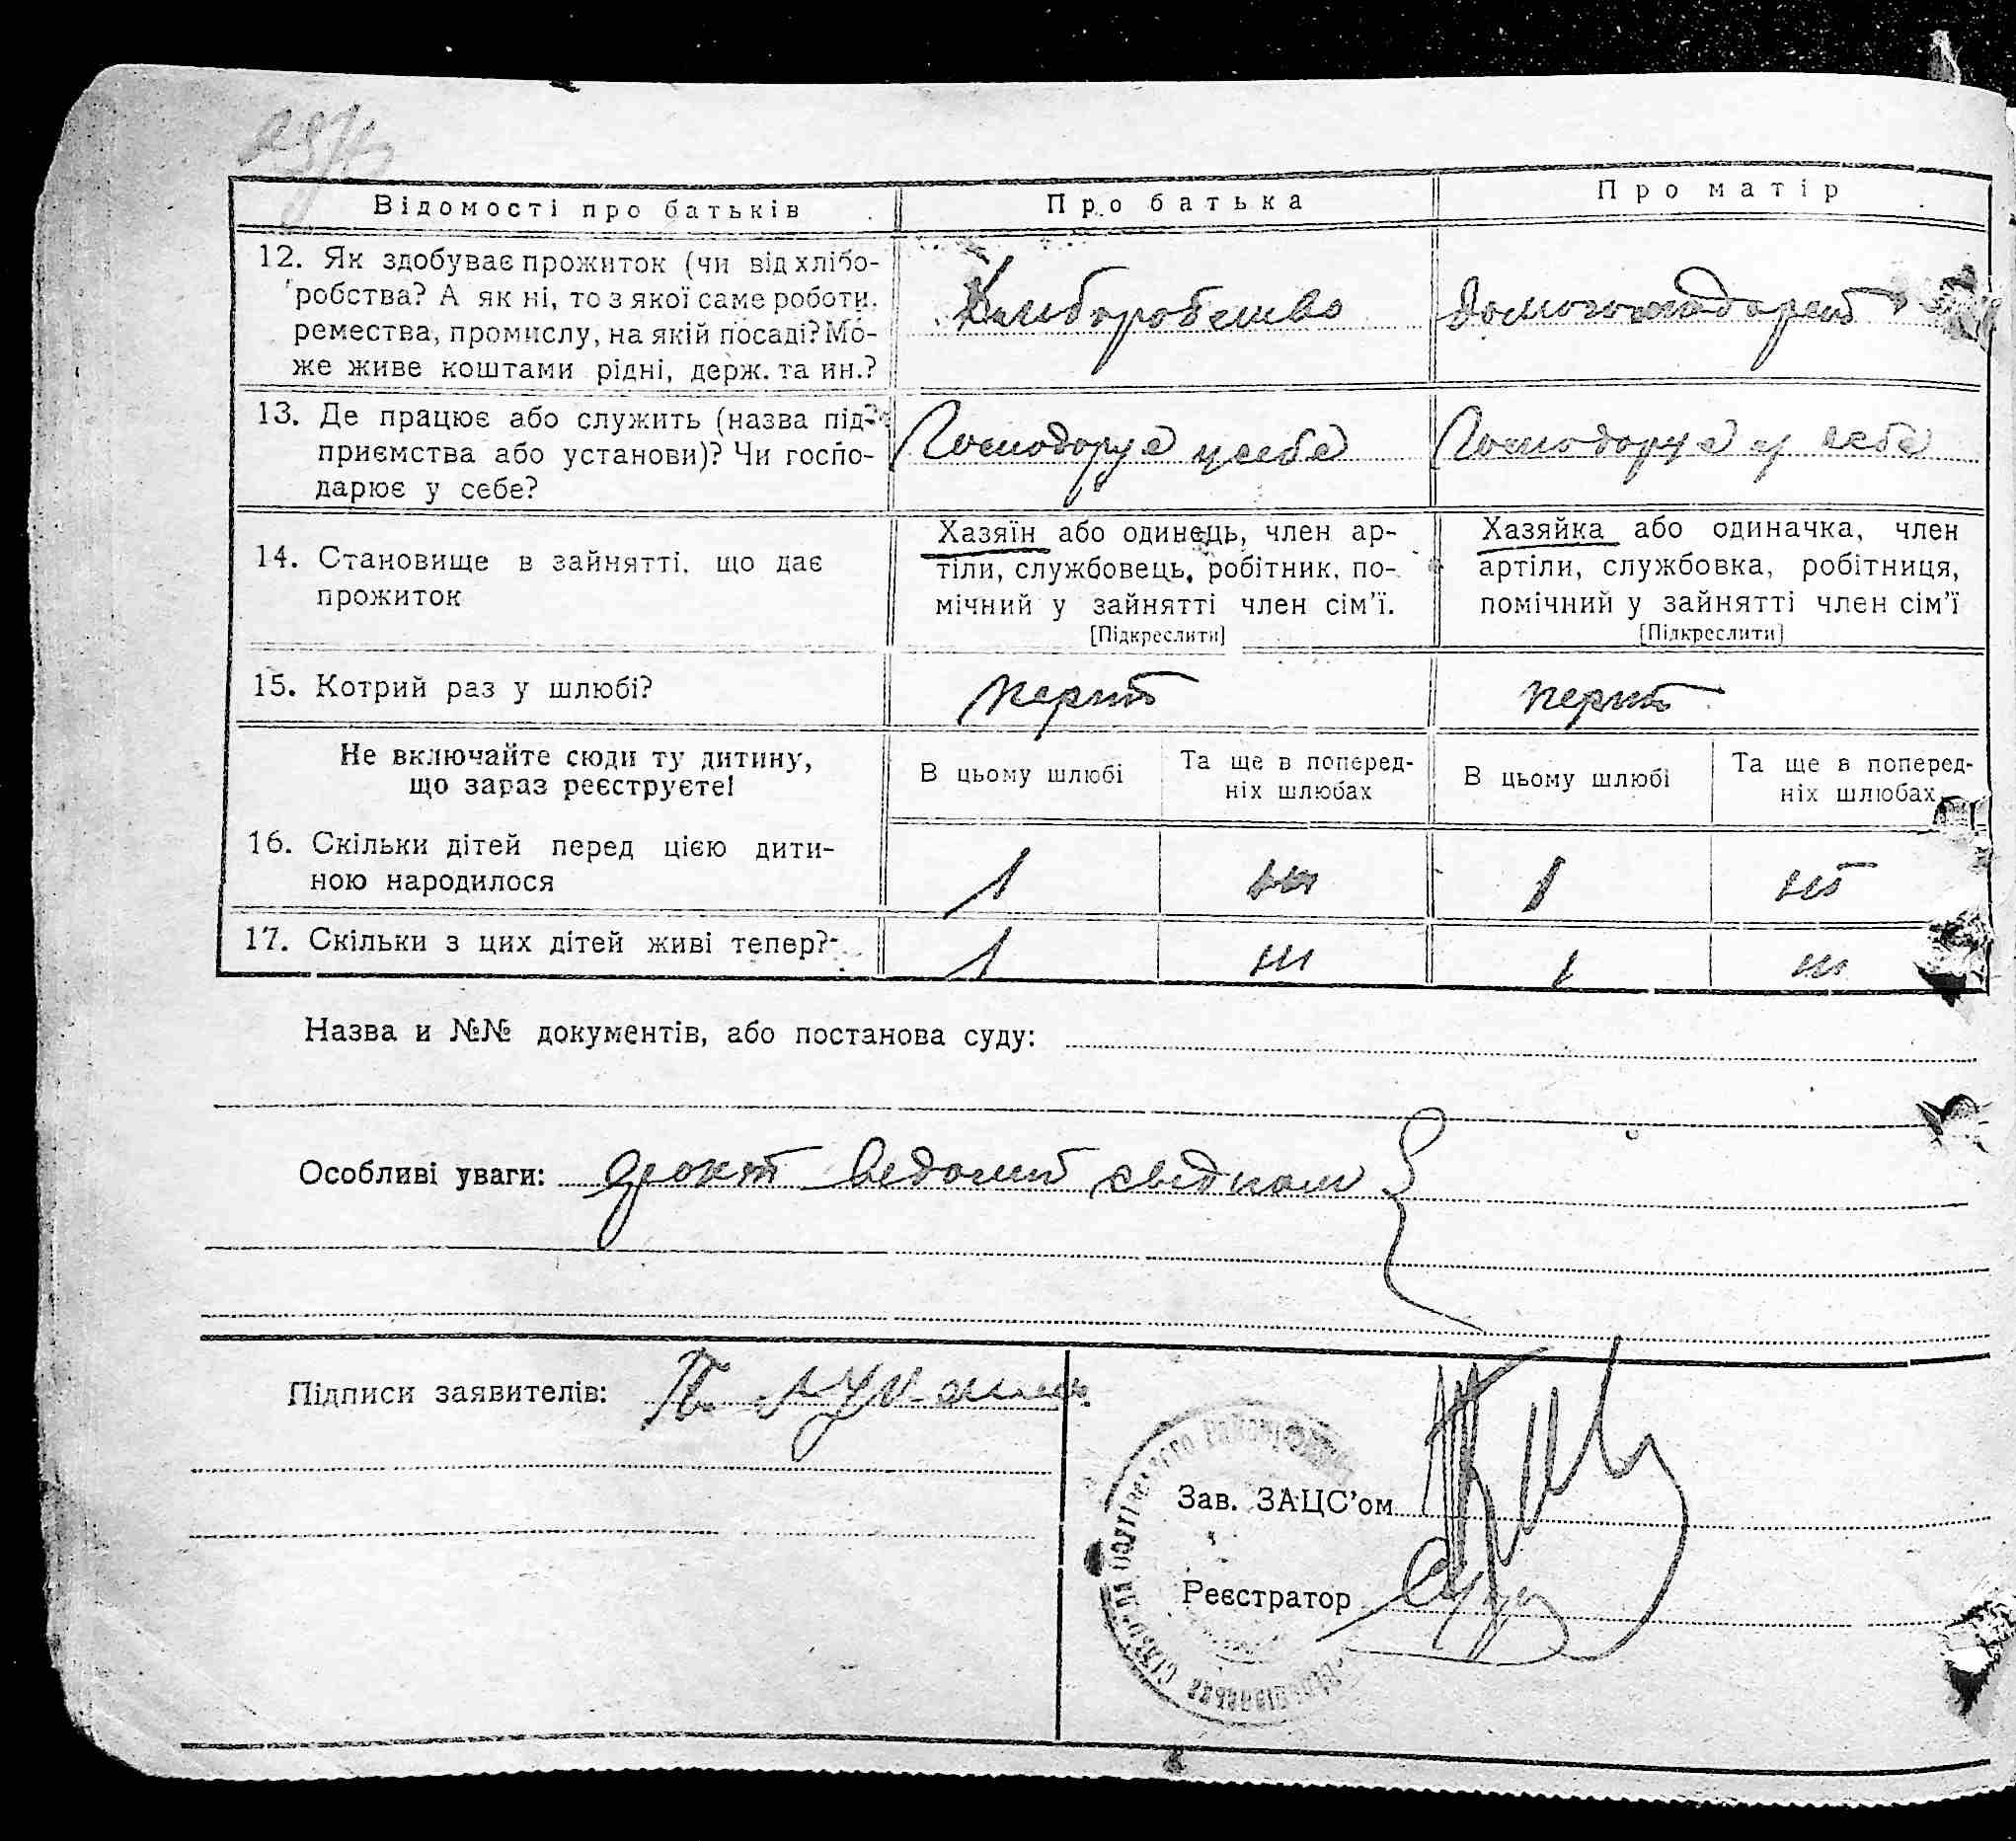 Відомості про батьків
Про батька
Про матір
12. Як здобуває прожиток (чи від хлібо-
робства? А як ні, то з якої саме роботи,
ремества, промислу, на якій посаді? Мо-
же живе коштами рідні, держ. та ин.?
Хлиборобство
13. Де працює або служить (назва під-
приємства або установи)? Чи госпо-
дарює у себе?
Господорує у себе
Господорує у себе
14. Становище в зайнятті, що дає
прожиток
Хазяїн або одинець, член ар-
тіли, службовець, робітник, по-
мічний у зайнятті член сім'ї.
[Підкреслити]
Хазяйка або одиначка, член
артіли, службовка, робітниця,
помічний у зайнятті член сім'ї
[Підкреслити]
15. Котрий раз у шлюбі?
перший
перший
Не включайте сюди ту дитину,
що зараз реєструєте!
В цьому шлюбі
Та ще в поперед-
ніх шлюбах
В цьому шлюбі
Та ще в поперед-
ніх шлюбах
16. Скільки дітей перед цією дити-
ною народилося
1
1
17. Скільки з цих дітей живі тепер?
1
1
Назва и №№ документів, або постанова суду:
Особливі уваги:
Підписи заявителів:
Зав. ЗАЦС'ом
Реєстратор